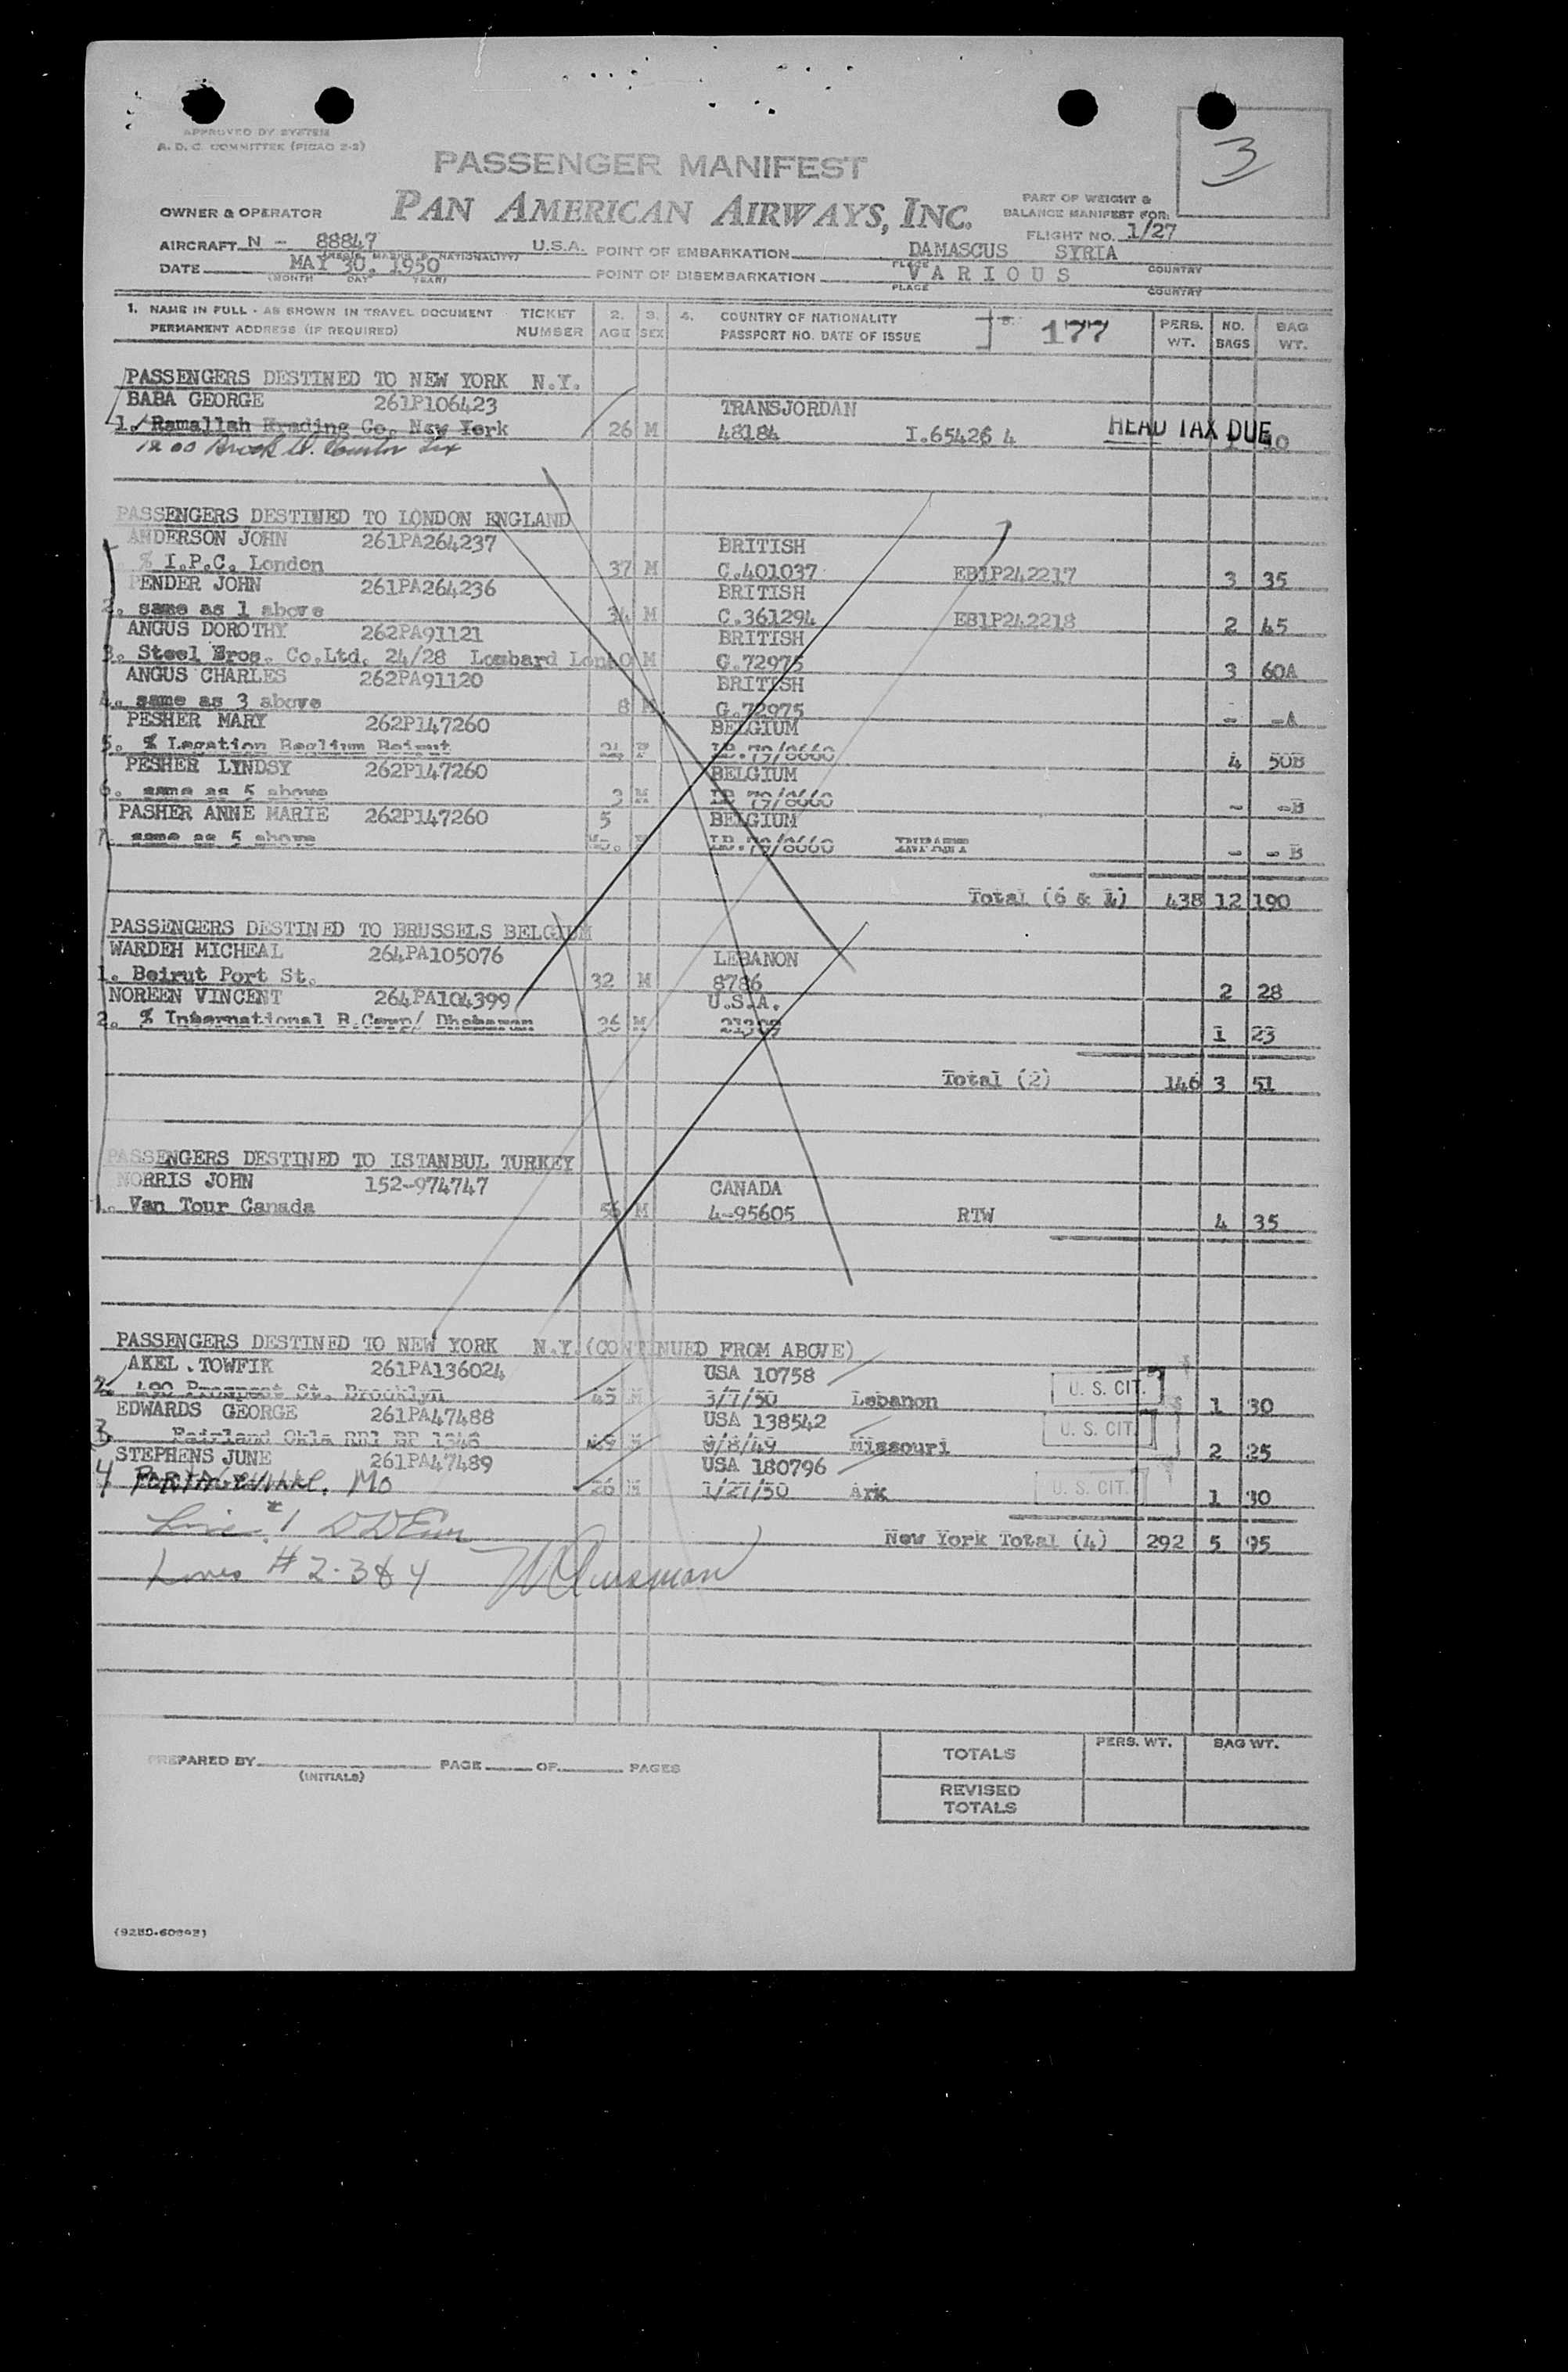 APPROVED BY SYSTEM
A. D. C. COMMITTEE (PICAO 2-2)
3
PASSENGER MANIFEST
PAN AMERICAN AIRWAYS, INC.
PART OF WEIGHT &
BALANCE MANIFEST FOR:
OWNER & OPERATOR
FLIGHT NO. 1/27
AIRCRAFT N - 88847 U.S.A. POINT OF EMBARKATION DAMASCUS SYRIA
(REGIS. MARKS & NATIONALITY) PLACE COUNTRY
DATE MAY 30, 1950 POINT OF DISEMBARKATION VARIOUS
(MONTH DAY YEAR) PLACE COUNTRY
1. NAME IN FULL - AS SHOWN IN TRAVEL DOCUMENT TICKET 2. 3. 4. COUNTRY OF NATIONALITY 5. 177 PERS. NO. BAG
PERMANENT ADDRESS (IF REQUIRED) NUMBER AGE SEX PASSPORT NO. DATE OF ISSUE WT. BAGS WT.
PASSENGERS DESTINED TO NEW YORK N.Y.
BABA GEORGE 261P106423 TRANSJORDAN
1. Ramallah Trading Co. New York 26 M 48184 I.65426 4 HEAD TAX DUE 1 10
1200 Brook St.
PASSENGERS DESTINED TO LONDON ENGLAND
ANDERSON JOHN 261PA264237 BRITISH
% I.P.C. London 37 M C.401037 EB1P242217 3 35
PENDER JOHN 261PA264236 BRITISH
2. same as 1 above 34 M C.361294 EB1P242218 2 45
ANGUS DOROTHY 262PA91121 BRITISH
3. Steel Bros. Co.Ltd. 24/28 Lombard Lon 40 M G.72975 3 60A
ANGUS CHARLES 262PA91120 BRITISH
4. same as 3 above 8 M G.72975 - -A
PESHER MARY 262P147260 BELGIUM
5. % Legation Beglium Beirut 24 F LB.79/8660 4 50B
PESHER LYNDSY 262P147260 BELGIUM
6. same as 5 above 3 M LB 79/8660 - -B
PASHER ANNE MARIE 262P147260 5 BELGIUM
7. same as 5 above Mo. F LB.79/8660 INFANT - - B
Total (6 & 1) 438 12 190
PASSENGERS DESTINED TO BRUSSELS BELGIUM
WARDEH MICHEAL 264PA105076 LEBANON
1. Beirut Port St. 32 M 8786 2 28
NOREEN VINCENT 264PA104399 U.S.A.
2. % International B.Comp/ Dhaharan 36 M 21309 1 23
Total (2) 146 3 51
PASSENGERS DESTINED TO ISTANBUL TURKEY
NORRIS JOHN 152-974747 CANADA
1. Van Tour Canada 56 M 4-95605 RTW 4 35
PASSENGERS DESTINED TO NEW YORK N.Y.(CONTINUED FROM ABOVE)
AKEL .TOWFIK 261PA136024 USA 10758
2. 490 Prospect St. Brooklyn 45 M 3/7/50 Lebanon U. S. CIT. 1 30
EDWARDS GEORGE 261PA47488 USA 138542
3. Fairland Okla RR1 BP 1346 49 M 9/8/49 Missouri U. S. CIT. 2 25
STEPHENS JUNE 261PA47489 USA 180796
4 PORTAGEVILLE. MO 26 M 1/27/50 Ark U. S. CIT. 1 30
Line #1
New York Total (4) 292 5 95
Lines #2-3&4
PREPARED BY PAGE OF PAGES
(INITIALS)
PERS. WT. BAG WT.
TOTALS
REVISED
TOTALS